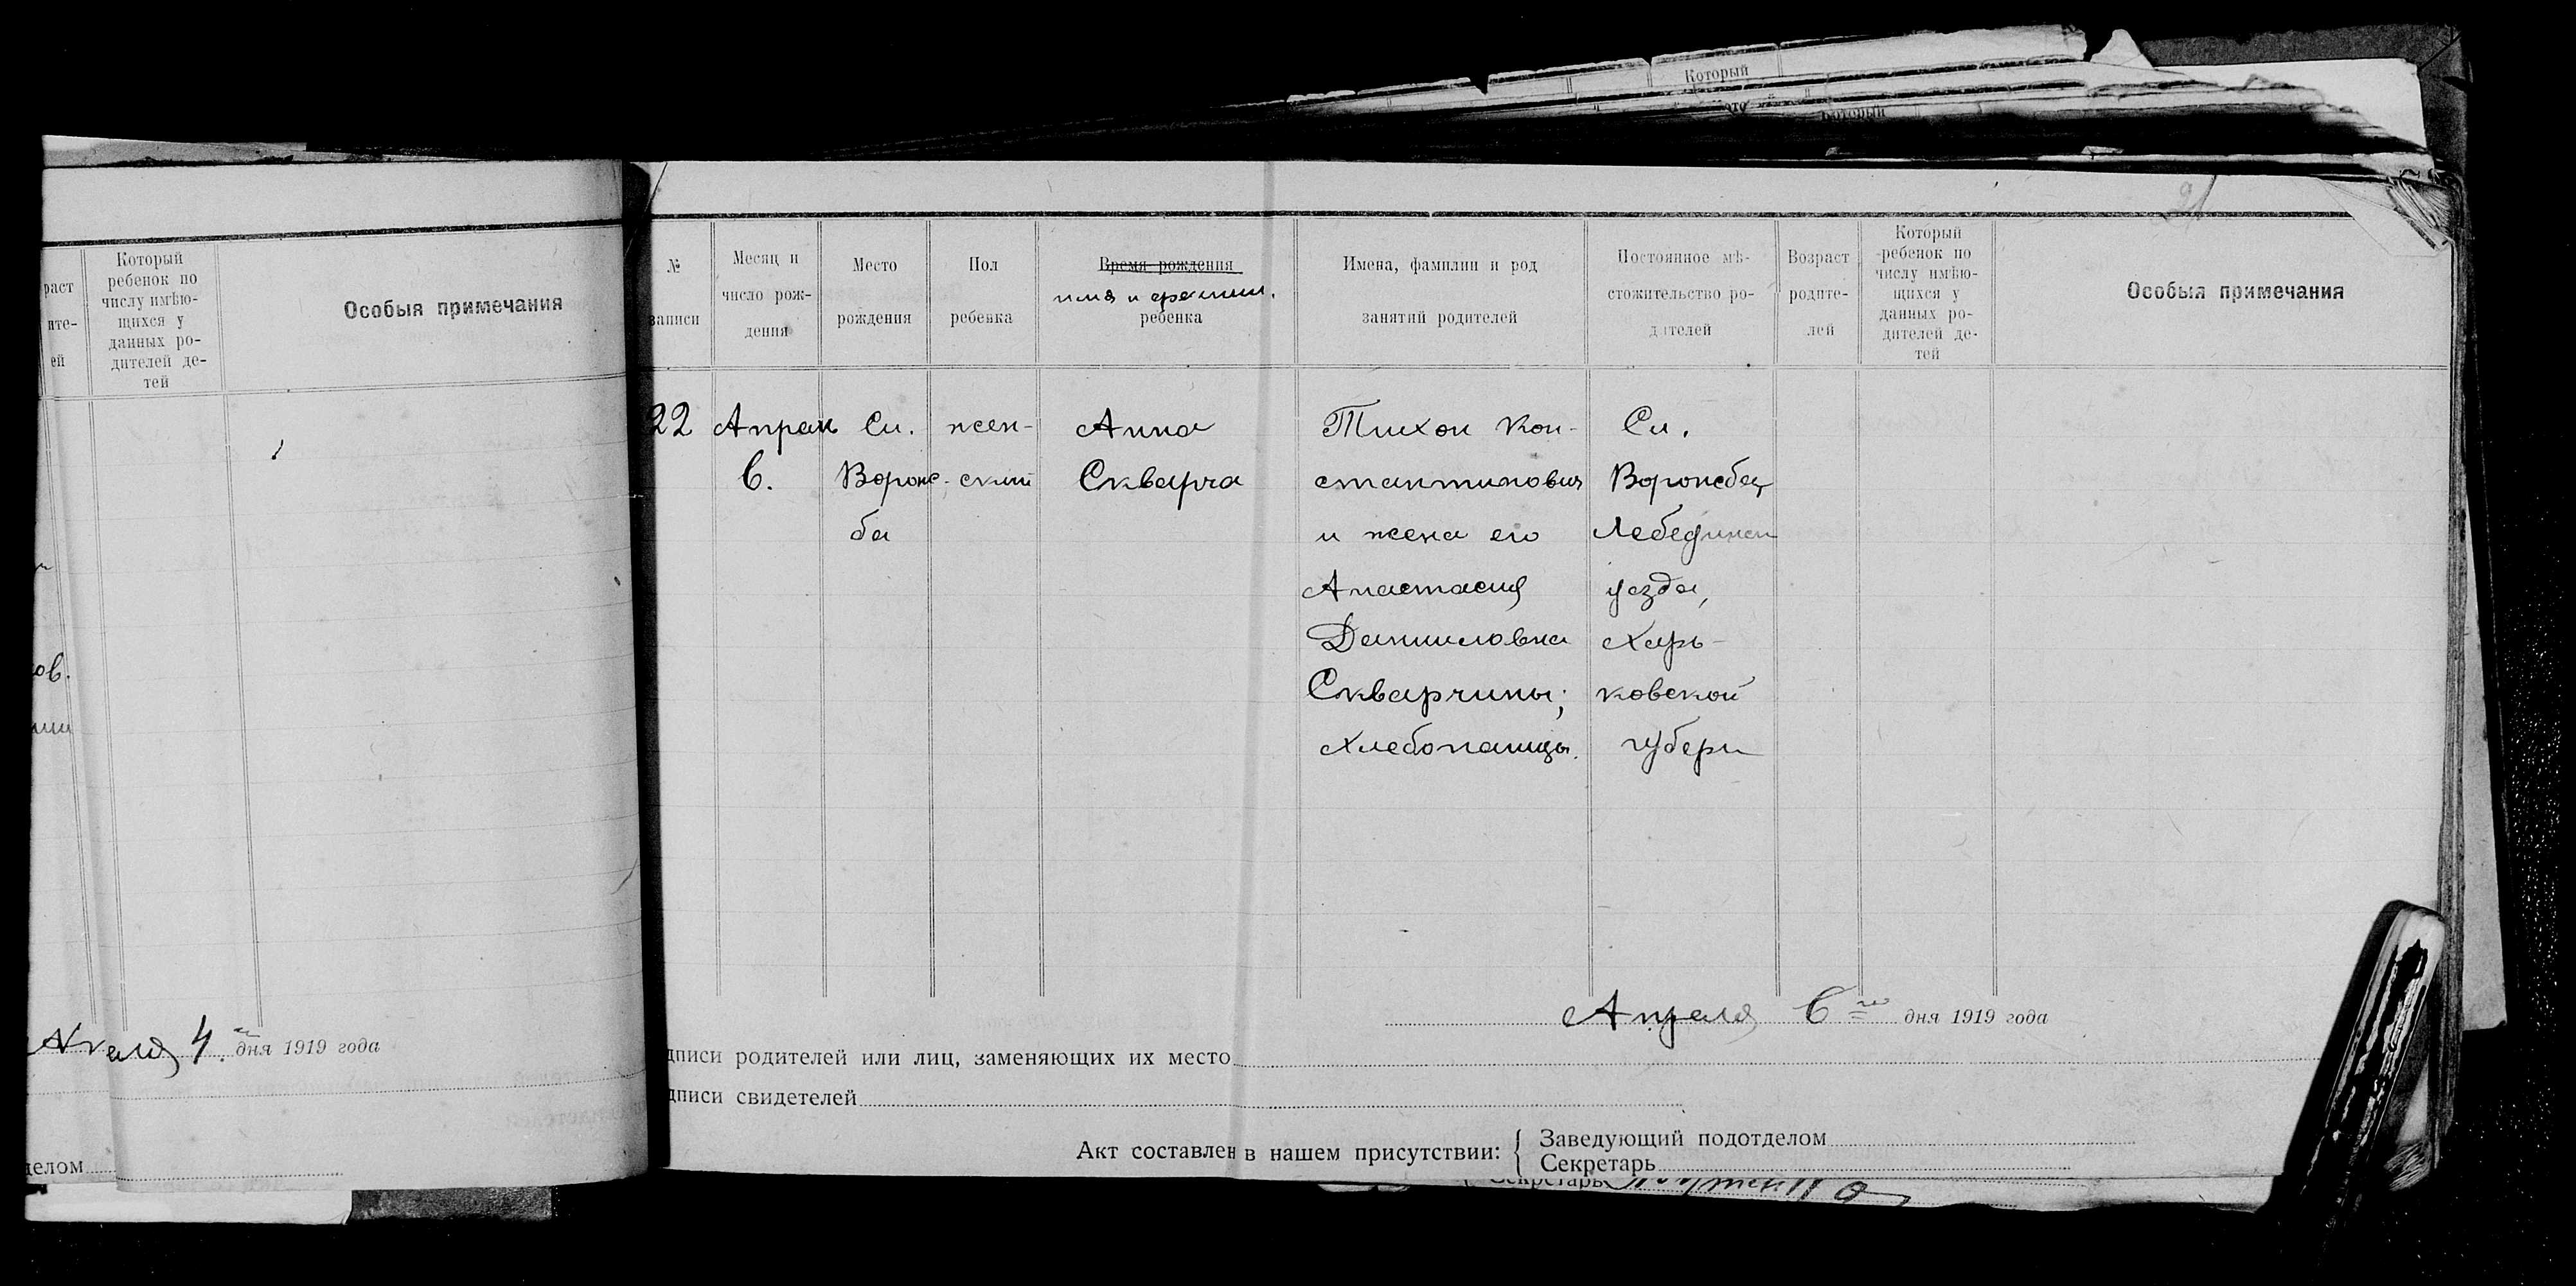 Который
Который
21
раст
ите-
ей
Который
ребенок по
числу имѣю-
щихся у
данных ро-
дителей де-
тей
Особыя примечания
ов.
4. дня 1919 года
делом
№
записи
Месяц и
число рож-
дения
Место
рождения
Пол
ребенка
Время рождения
имя и фамил.
ребенка
Имена, фамилии и род
занятий родителей
Постоянное мѣ-
стожительство ро-
дителей
Возраст
родите-
лей
Который
ребенок по
числу имѣю-
щихся у
данных ро-
дителей де-
тей
Особыя примечания
22
Апрель
6.
Сл.
Воронс-
ба
жен-
ский
Анна
Скварча
Тихон Кон-
стантинович
и жена его
Анастасия
Данииловна
Скварчины;
хлебопашцы.
Сл.
Воронебец
Лебединск
уезда,
Харь-
ковской
губерн
Апреля 6го дня 1919 года
дписи родителей или лиц, заменяющих их место
дписи свидетелей
Акт составлен в нашем присутствии:
Заведующий подотделом
Секретарь
Секретарь